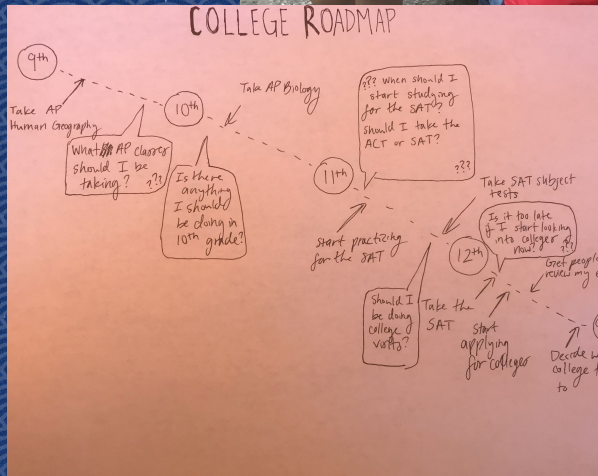 COLLEGE ROADMAP
9th
Take AP
Human Geography
What AP classes
should I be
taking? ???
10th
Take AP Biology
Is there
anything
I should
be doing in
10th grade?
??? When should I
start studying
for the SAT?
Should I take the
ACT or SAT?
???
11th
Start practicing
for the SAT
Take SAT subject
tests
Should I
be doing
college
visits?
12th
Take the
SAT
Is it too late
if I start looking
into colleges
now? ???
Start
applying
for colleges
Get people
review my
Decide
college
to